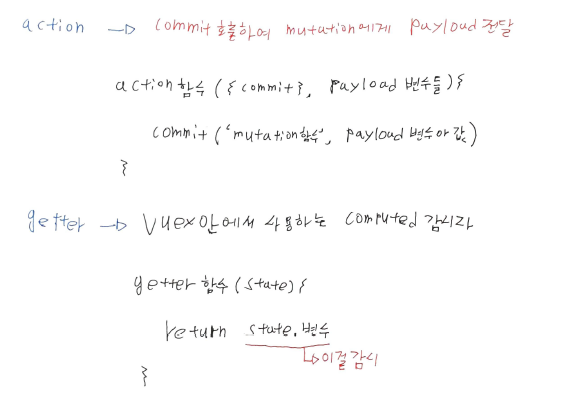 action → commit 호출하여 mutation에게 payload 전달
action함수 ({commit}, payload 변수들){
commit ('mutation함수', payload 변수or값)
}
getter → Vuex안에서 사용하는 computed 감시자
getter 함수 (state){
return state.변수
↳이걸 감시
}